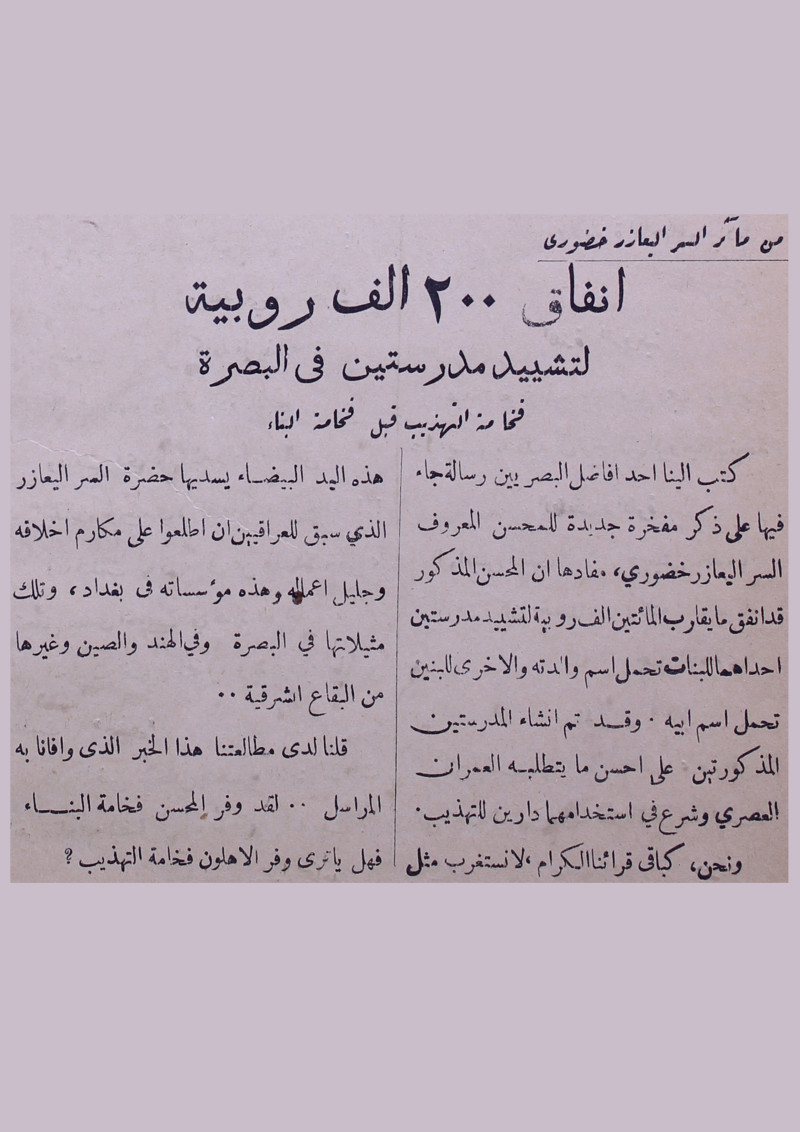 من مآثر السر اليعازر خضورى
انفاق ٢٠٠ الف روبية
لتشييد مدرستين فى البصرة
فخامة التهذيب قبل فخامة البناء
كتب الينا احد افاضل البصريين رسالة جاء
فيها على ذكر مفخرة جديدة للمحسن المعروف
السر اليعازر خضوري، مفادها ان المحسن المذكور
قد انفق ما يقارب المائتين الف روبية لتشييد مدرستين
احداهما للبنات تحمل اسم والدته والاخرى للبنين
تحمل اسم ابيه . وقد تم انشاء المدرستين
المذكورتين على احسن ما يتطلبه العمران
العصري وشرع في استخدامهما دارين للتهذيب.
ونحن، كباقى قرائنا الكرام ،لا نستغرب مثل
هذه اليد البيضاء يسديها حضرة السر اليعازر
الذي سبق للعراقيين ان اطلعوا على مكارم اخلاقه
وجليل اعماله وهذه مؤسساته فى بغداد، وتلك
مثيلاتها في البصرة وفي الهند والصين وغيرها
من البقاع الشرقية ..
قلنا لدى مطالعتنا هذا الخبر الذى وافانا به
المراسل .. لقد وفر المحسن فخامة البناء
فهل يا ترى وفر الاهلون فخامة التهذيب ؟